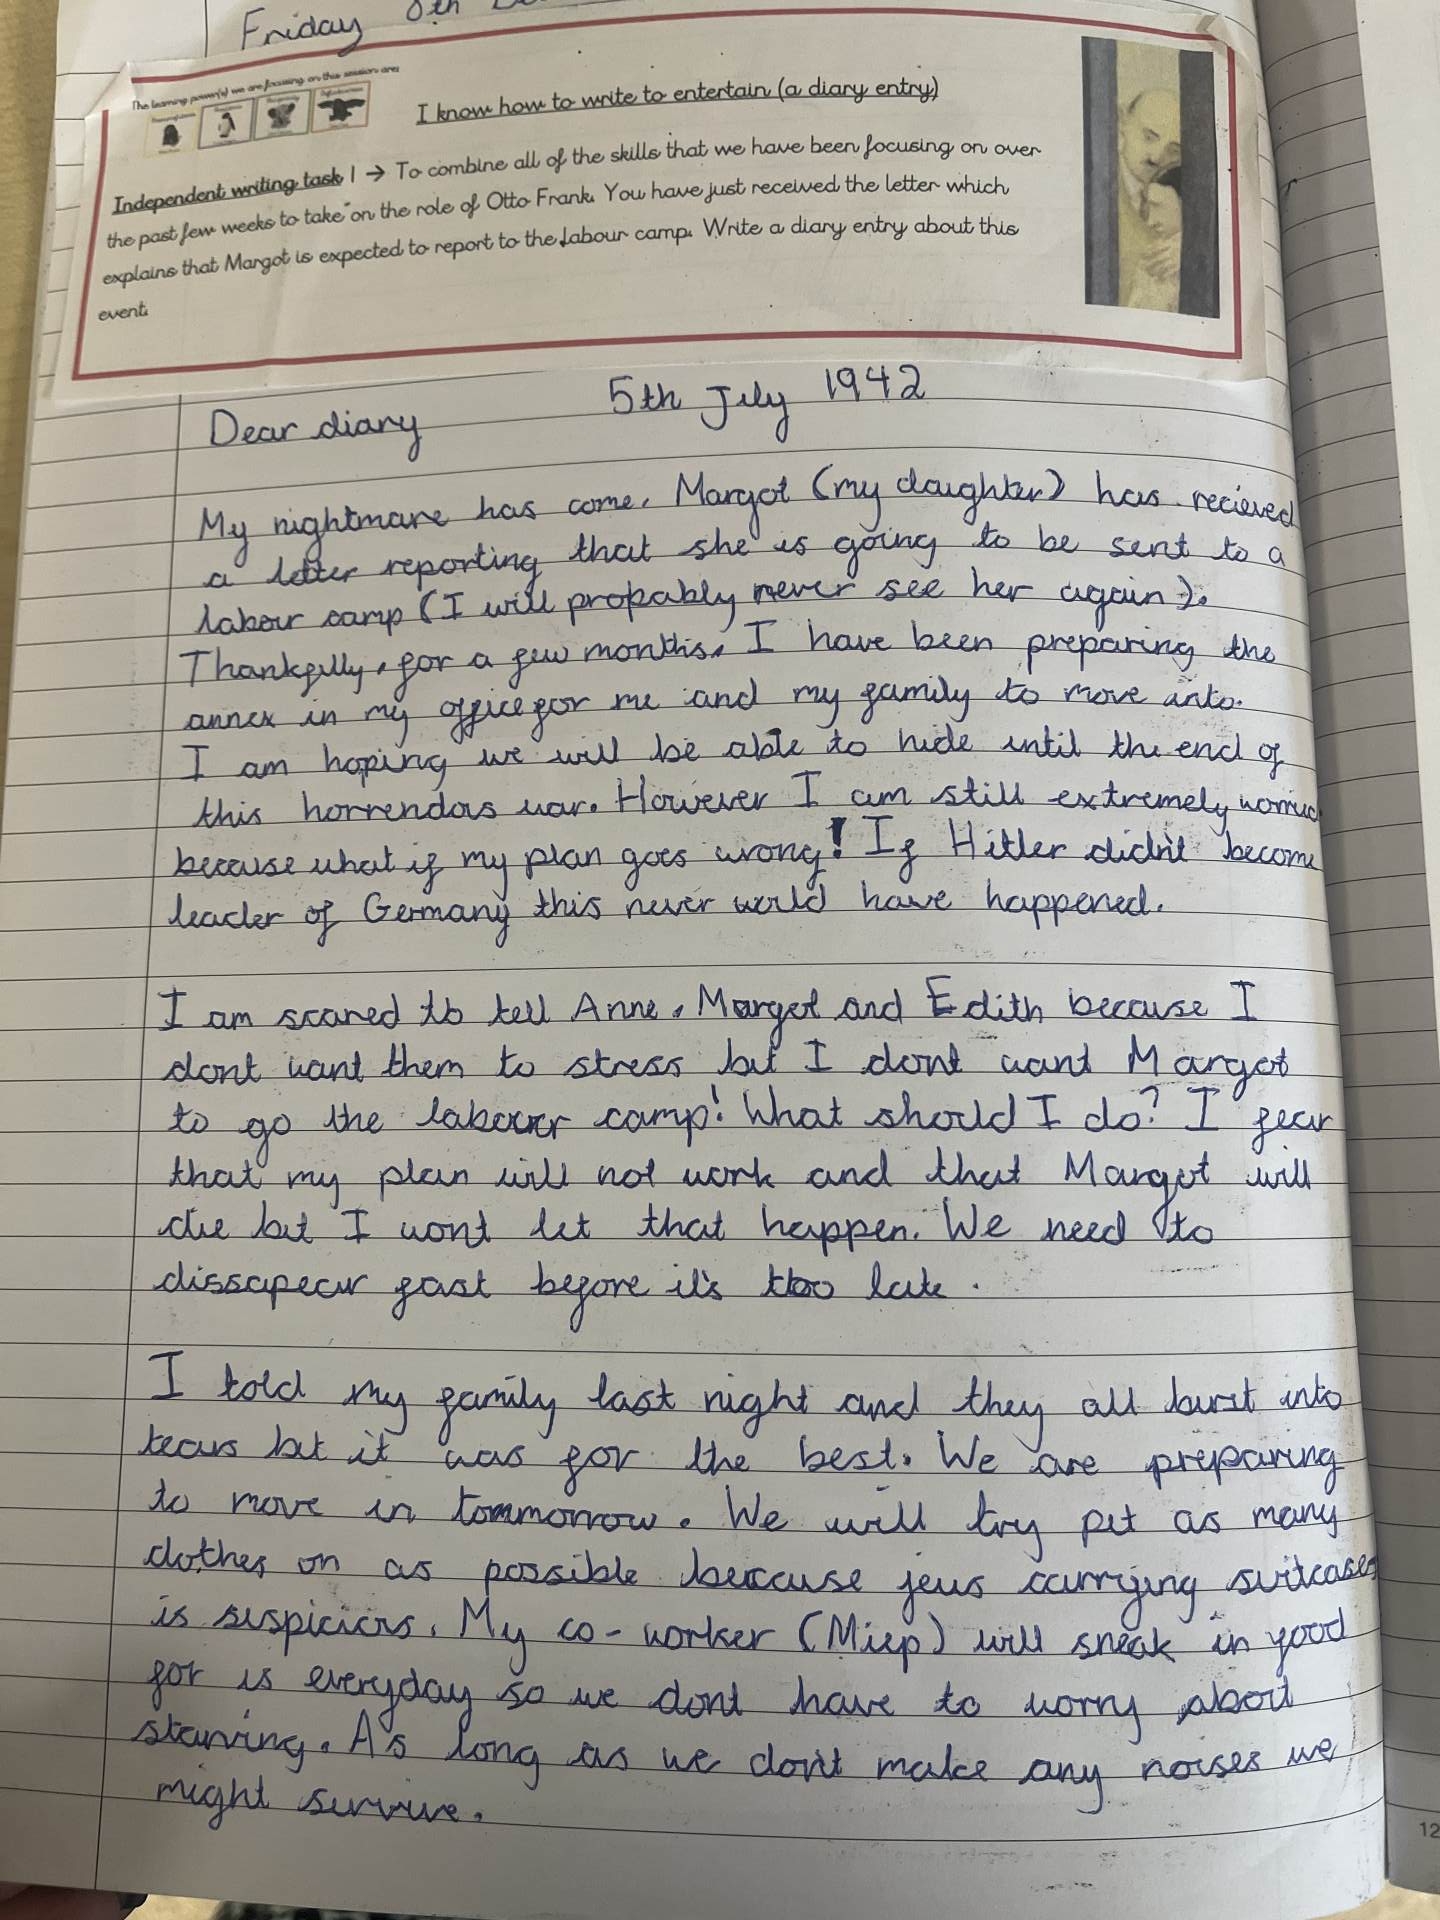 Friday 8th
The learning power(s) we are focusing on this session are:
I know how to write to entertain (a diary entry)
Independent writing task 1 → To combine all of the skills that we have been focusing on over
the past few weeks to take on the role of Otto Frank. You have just received the letter which
explains that Margot is expected to report to the labour camp. Write a diary entry about this
event.
5th July 1942
Dear diary
My nightmare has come. Margot (my daughter) has recieved
a letter reporting that she is going to be sent to a
labour camp (I will propably never see her again).
Thankfully, for a few months, I have been preparing the
annex in my office for me and my family to move into.
I am hoping we will be able to hide until the end of
this horrendous war. However I am still extremely worried
because what if my plan goes wrong! If Hitler didn't become
leader of Germany this never would have happened.
I am scared to tell Anne, Margot and Edith because I
dont want them to stress but I dont want Margot
to go the labour camp! What should I do? I fear
that my plan will not work and that Margot will
die but I wont let that happen. We need to
dissapear fast before it's too late.
I told my family last night and they all burst into
tears but it was for the best. We are preparing
to move in tommorrow. We will try put as many
clothes on as possible because jews carrying suitcases
is suspicious. My co-worker (Miep) will sneak in food
for us everyday so we dont have to worry about
starving. As long as we don't make any noises we
might survive.
12